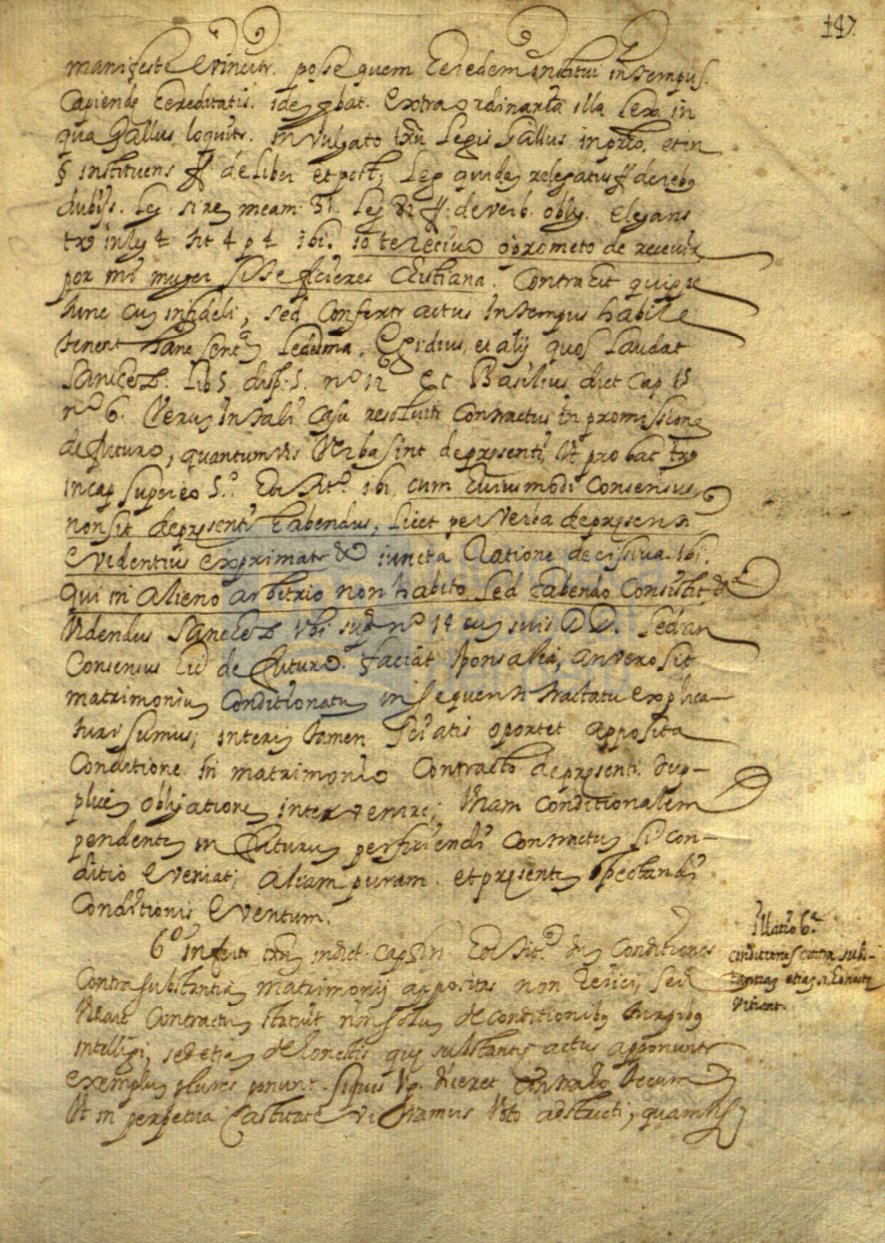 147
manifeste evincitr. posse quem heredem institui in tempus
capiendę hereditatis. extraordinaria illa lex in
qua Gallus loquitr. in vulgato Legis Gallus in et in
§ instituens ff. de Liber et post; Leg quidẽ relegatus ff de rebꝯ
dubijs. Leg. si rem meam 31. Leg ff. de verb. oblig. elegans
ibi. io te reciuo o prometo de receuir
por mi muger si te ficieres Cristiana. Contrahit quippe
hunc cum infideli, sed confertr actus in tempus habile
tenent hanc sentam Ledesma, Egidius, et alij quos laudat
Sanchez. Lib 5. disp. 5. nº 12 et Basilius dict cap 15
nº 6. Verum in tali casu resolvitr contractus in promissionẽ
de futuro, quantumvis verba sint de presenti, ut probat
in cap super eo 5.º ibi, cum huiusmodi consensus
non sit de presenti habendus, licet per verba de presenti
evidentius exprimatr & iuncta ratione decissiva. ibi.
qui in alieno arbitrio non habito, sed habendo consistit &ª
Videndus Sanchez ubi supª nº 14 cum suis DD. Sed an
consensus hic de futuro faciat sponsalia, an vero sit
matrimoniũ conditionatũ in sequenti tractatu explica-
turi sumus; interim tamen sciatis oportet apposita
conditione in matrimonio contracto de presenti dup-
plicẽ obligationẽ intervenire; unam conditionalem
pendentẽ in futurũ perficiendi contractus si con-
ditio eveniat; aliam puram et presentẽ spectandi
conditionis eventum.
6º infertr indict. cap fin conditiones
contra substantiã matrimonij appositas non reijci, sed
contractũ statuit non solum de conditionibꝯ turpibꝯ
intelligi, sed etiã de honestis quę substantię actus apponuntr
exemplum plures ponunt. siquis vg. diceret contraho tecum
ut in perpetua castitate vivamus voto adstricti, quamvis
Illatio 6.ª
conditiones contra subs-
tantiam etiam si honestę
vitiant.